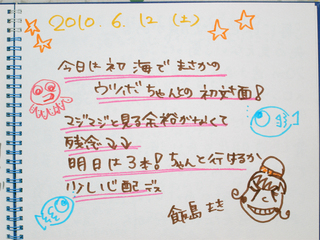 2010. 6. 12 (土)
今日は初海でまさかの
ウツボちゃんとの初対面!
マジマジと見る余裕がなくて
残念↓↓
明日は3本!ちゃんと行けるか
少し心配デス
飯島